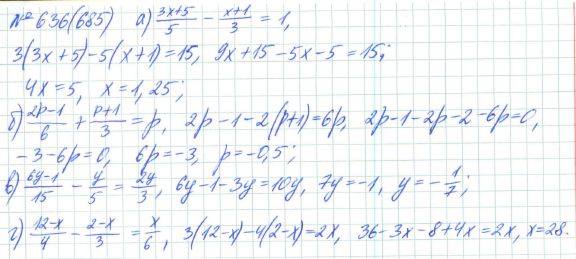 №636(685) а) (3x+5)/5 - (x+1)/3 = 1,
3(3x+5)-5(x+1)=15, 9x+15-5x-5=15;
4x=5, x=1,25;
б) (2p-1)/6 + (p+1)/3 = p, 2p-1-2(p+1)=6p, 2p-1-2p-2-6p=0,
-3-6p=0, 6p=-3, p=-0,5;
в) (6y-1)/15 - y/5 = 2y/3, 6y-1-3y=10y, 7y=-1, y=-1/7;
г) (12-x)/4 - (2-x)/3 = x/6, 3(12-x)-4(2-x)=2x, 36-3x-8+4x=2x, x=28.